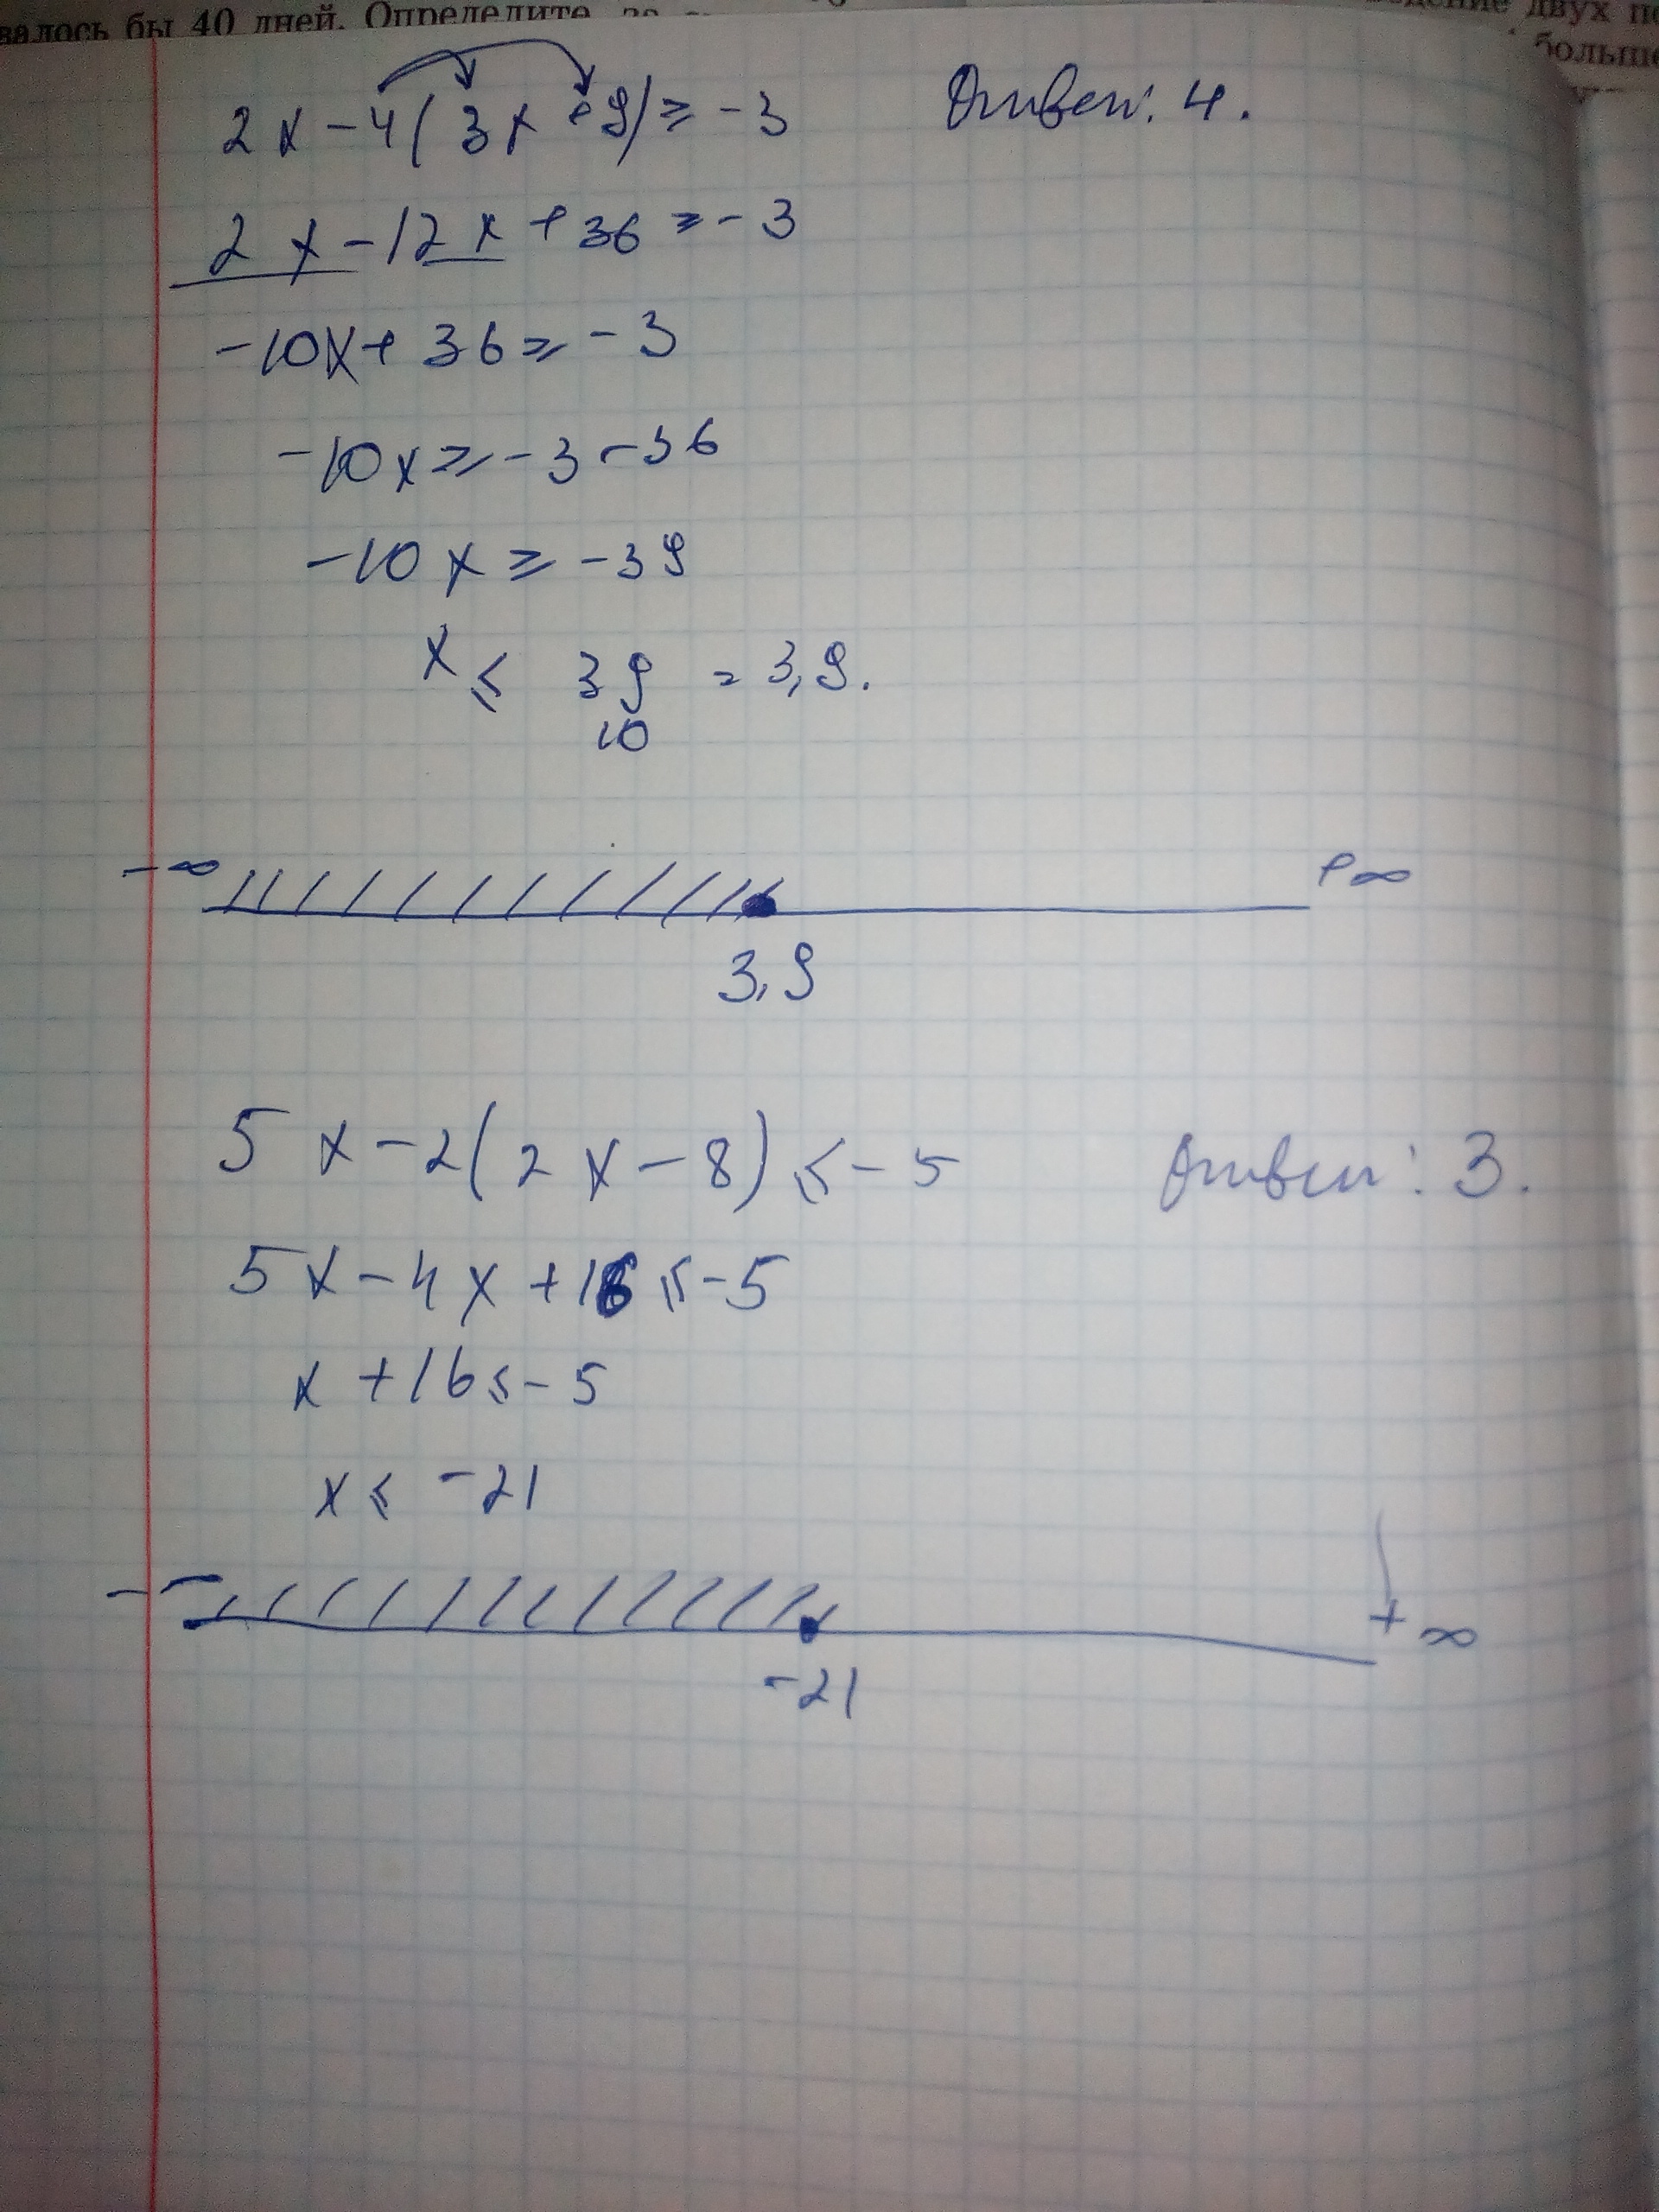 валось бы 40 дней. Определите, за
двух
больше
2x - 4(3x + 9) ≥ -3 Ответ: 4.
2x - 12x + 36 ≥ -3
-10x + 36 ≥ -3
-10x ≥ -3 - 36
-10x ≥ -39
x ≤ 39 = 3,9.
10
-∞ +∞
3,9
5x - 2(2x - 8) ≤ -5 Ответ: 3.
5x - 4x + 16 ≤ -5
x + 16 ≤ -5
x ≤ -21
+∞
-21